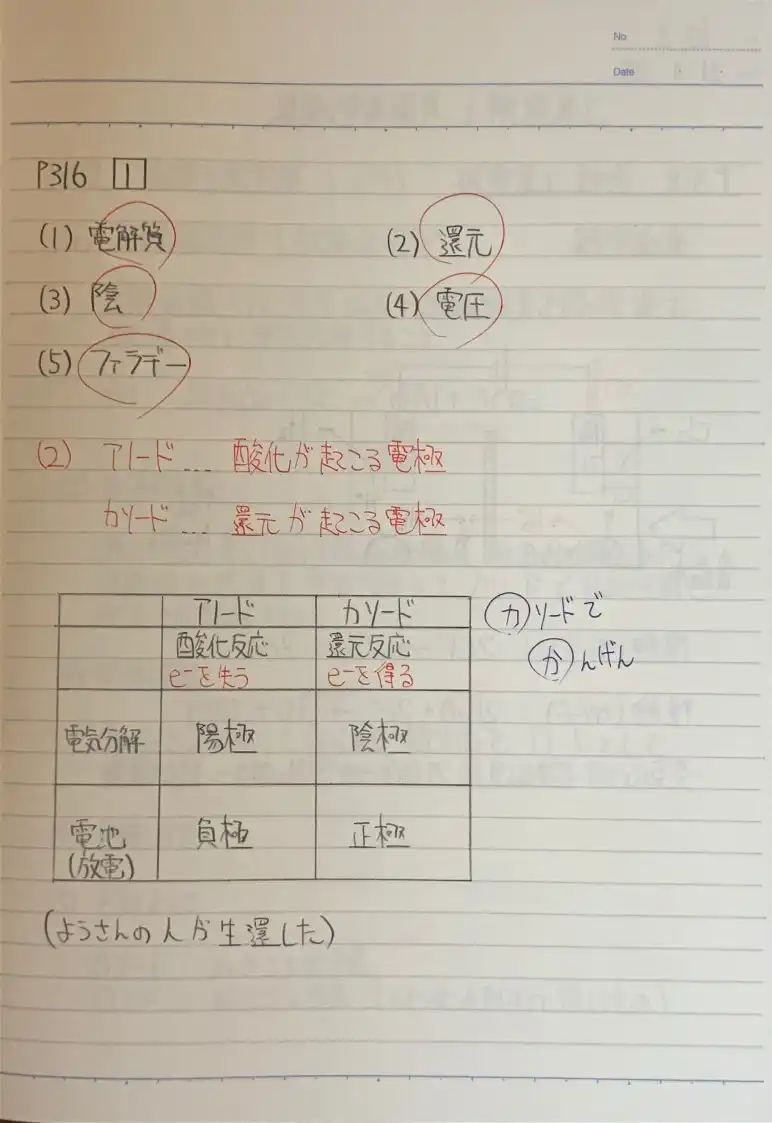 No
Date
P316 1
(1) 電解質 (2) 還元
(3) 陰 (4) 電圧
(5) ファラデー
(2) アノード… 酸化が起こる電極
カソード… 還元が起こる電極
アノード カソード
酸化反応 還元反応
e⁻を失う e⁻を得る
電気分解 陽極 陰極
電池 負極 正極
(放電)
カソードで
かんげん
(ようさんの人が生還した)